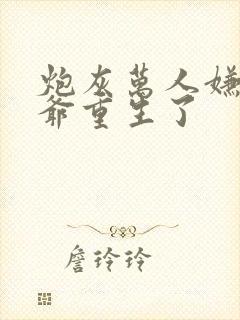 炮灰萬人嫌
爺重生了
詹玲玲